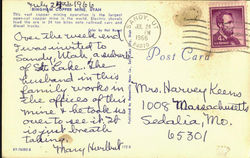 July 24 1966
BINGHAM COPPER MINE, UTAH
This vast copper mining operation is the largest
open-cut copper mine in the world. Electric shovels
diesel trucks.
Over the weekend
I was invited to
Sandy, Utah a suburb
of St. Lake. The
husband in this
family works in
the offices of this
mine & he took us
over to see it. It
is just breath
taking.
Mary Hurlbut
SANDY
JUL 25
PM
1966
Post Card
Mrs. Harvey Koens
1008 Massachusetts
Sedalia, Mo.
65301